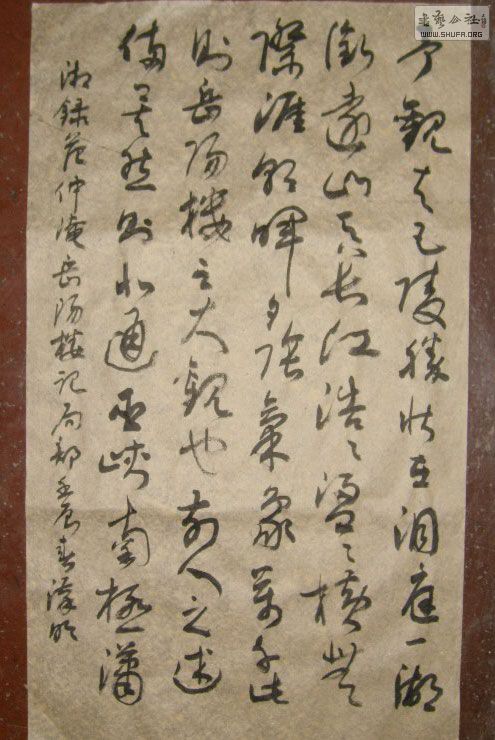 书艺公社
WWW.SHUFA.ORG
予觀夫巴陵勝狀在洞庭一湖
銜遠山吞長江浩々湯々橫無
際涯朝暉夕陰氣象萬千此
則岳陽樓之大觀也前人之述
備矣然則北通巫峽南極瀟
湘録范仲淹岳陽樓記局部壬辰春